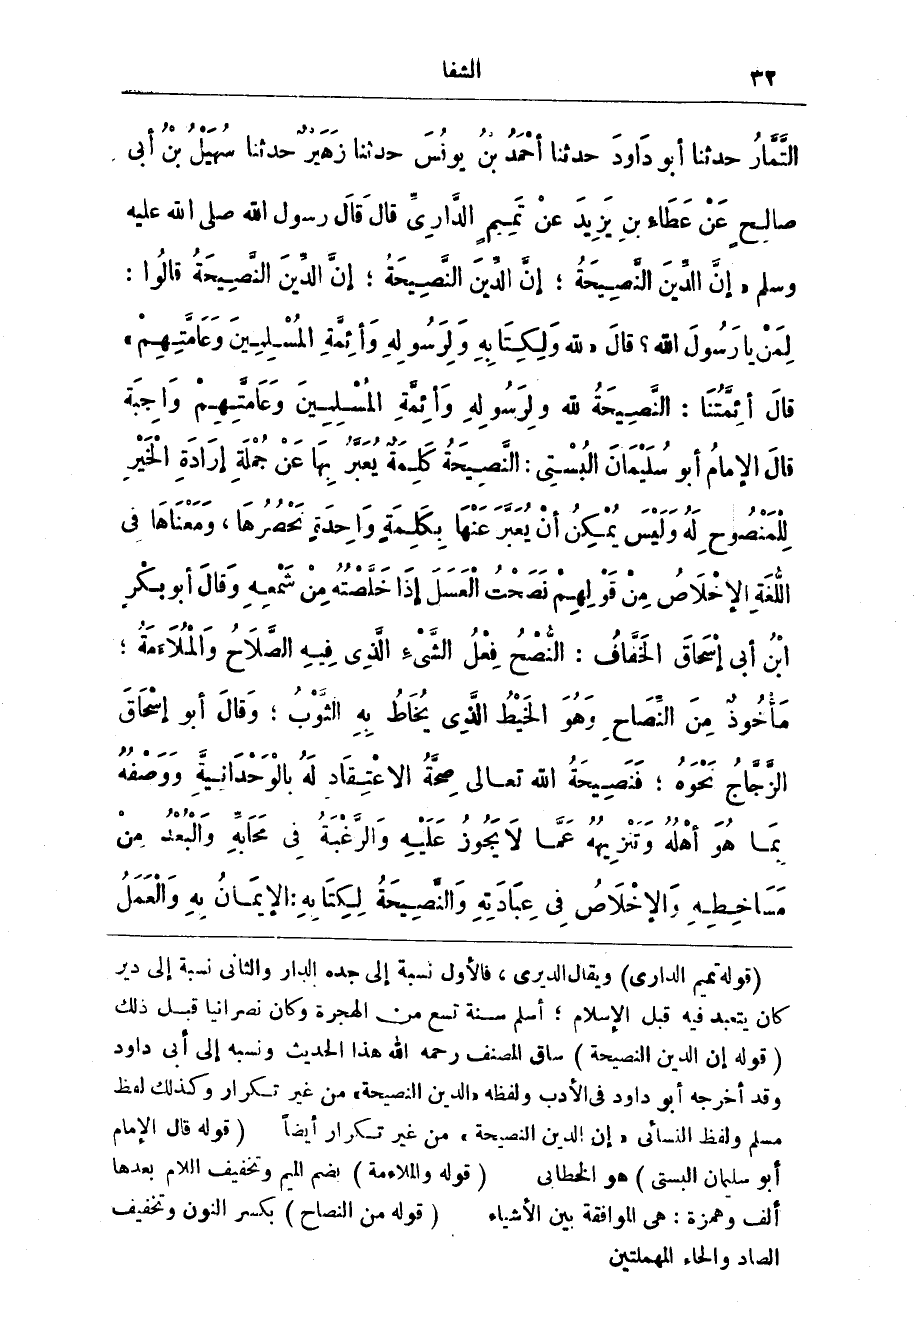 ٣٢
الشفا
التَّمَّارُ حدثنا أبو دَاودَ حدثنا أَحْمَدُ بْنُ يونُسَ حدثنا زُهَيْرٌ حدثنا سُهَيْلُ بْنُ أبى
صالِحٍ عَنْ عَطَاءِ بنِ يَزِيدَ عنْ تَمِيمٍ الدَّارِىِّ قالَ قَالَ رسول الله صلى الله عليه
وسلم « إنَّ الدِّينَ النَّصِيحَةُ ؛ إنَّ الدِّينَ النَّصِيحَةُ ؛ إنَّ الدِّينَ النَّصِيحَةُ قالُوا :
لِمَنْ يا رَسُولَ الله ؟ قالَ « لله وَلِكِتَابِهِ وَلِرَسُولِهِ وَأئِمَّةِ المُسْلِمِينَ وَعَامَّتِهِمْ »
قالَ أئِمَّتُنَا : النَّصِيحَةُ لله ولِرَسُولِهِ وَأئِمَّةِ المُسْلِمِينَ وَعَامَّتِهِمْ وَاجِبَة
قالَ الإمامُ أبو سُلَيْمَانَ البُسْتِى : النَّصِيحَةُ كَلِمَةٌ يُعَبَّرُ بِهَا عَنْ جُمْلَةِ إرَادَةِ الْخَيْرِ
لِلْمَنْصُوحِ لَهُ وَلَيْسَ يُمْكِنُ أنْ يُعَبَّرَ عَنْهَا بِكَلِمَةٍ وَاحِدَةٍ تَحْصُرُهَا ، وَمَعْنَاهَا فى
اللُّغَةِ الإخْلَاصُ مِنْ قَوْلِهِمْ نَصَحْتُ الْعَسَلَ إذَا خَلَّصْتُهُ مِنْ شَمْعِهِ وَقَالَ أبو بَكْرِ
ابْنُ أبى إسْحَاقَ الخَفَّافُ : النُّصْحُ فِعْلُ الشَّىْءِ الَّذِى فِيهِ الصَّلَاحُ وَالْمُلَاءَمَةُ ؛
مَأْخُوذٌ مِنَ النِّصَاحِ وَهُوَ الخَيْطُ الذَّى يُخَاطُ بِهِ الثَّوْبُ ؛ وَقَالَ أبو إسْحَاقَ
الزَّجَّاجُ نَحْوَهُ ؛ فَنَصِيحَةُ الله تعـالى صِحَّةُ الاعْتِقَادِ لَهُ بالْوَحْدَانِيةَّ وَوَصْفُهُ
بِمَـا هُوَ أهْلُهُ وَتَنْزِيهُهُ عَمَّـا لَا يَجُوزُ عَلَيْهِ وَالرَّغْبَةُ فى مَحَابِّهِ وَالْبُعْدُ مِنْ
مَسَاخِطِهِ وَالإخْلَاصُ فى عِبَادَتِهِ وَالنَّصِيحَةُ لِكِتَابِهِ : الإيمَـانُ بِهِ وَالْعَمَلُ
(قوله تميم الدارى) ويقال الديرى ، فالأول نسبة إلى جده الدار والثانى نسبة إلى دير
كان يتعبد فيه قبل الإسلام ؛ أسلم سـنة تسع من الهجرة وكان نصرانيا قبـل ذلك
( قوله إن الدين النصيحة ) ساق المصنف رحمه الله هذا الحديث ونسبه إلى أبى داود
وقد أخرجه أبو داود فى الأدب ولفظه « الدين النصيحة » من غير تـكرار وكذلك لفظ
مسلم ولفظ النسائى « إن الدين النصيحة » من غير تـكرار أيضاً ( قوله قال الإمام
أبو سليمان البستى ) هو الخطابى ( قوله والملاءمة ) بضم الميم وتخفيف اللام بعدها
ألف وهمزة : هى الموافقة بين الأشياء ( قوله من النصاح ) بكسر النون وتخفيف
الصاد والحاء المهملتين